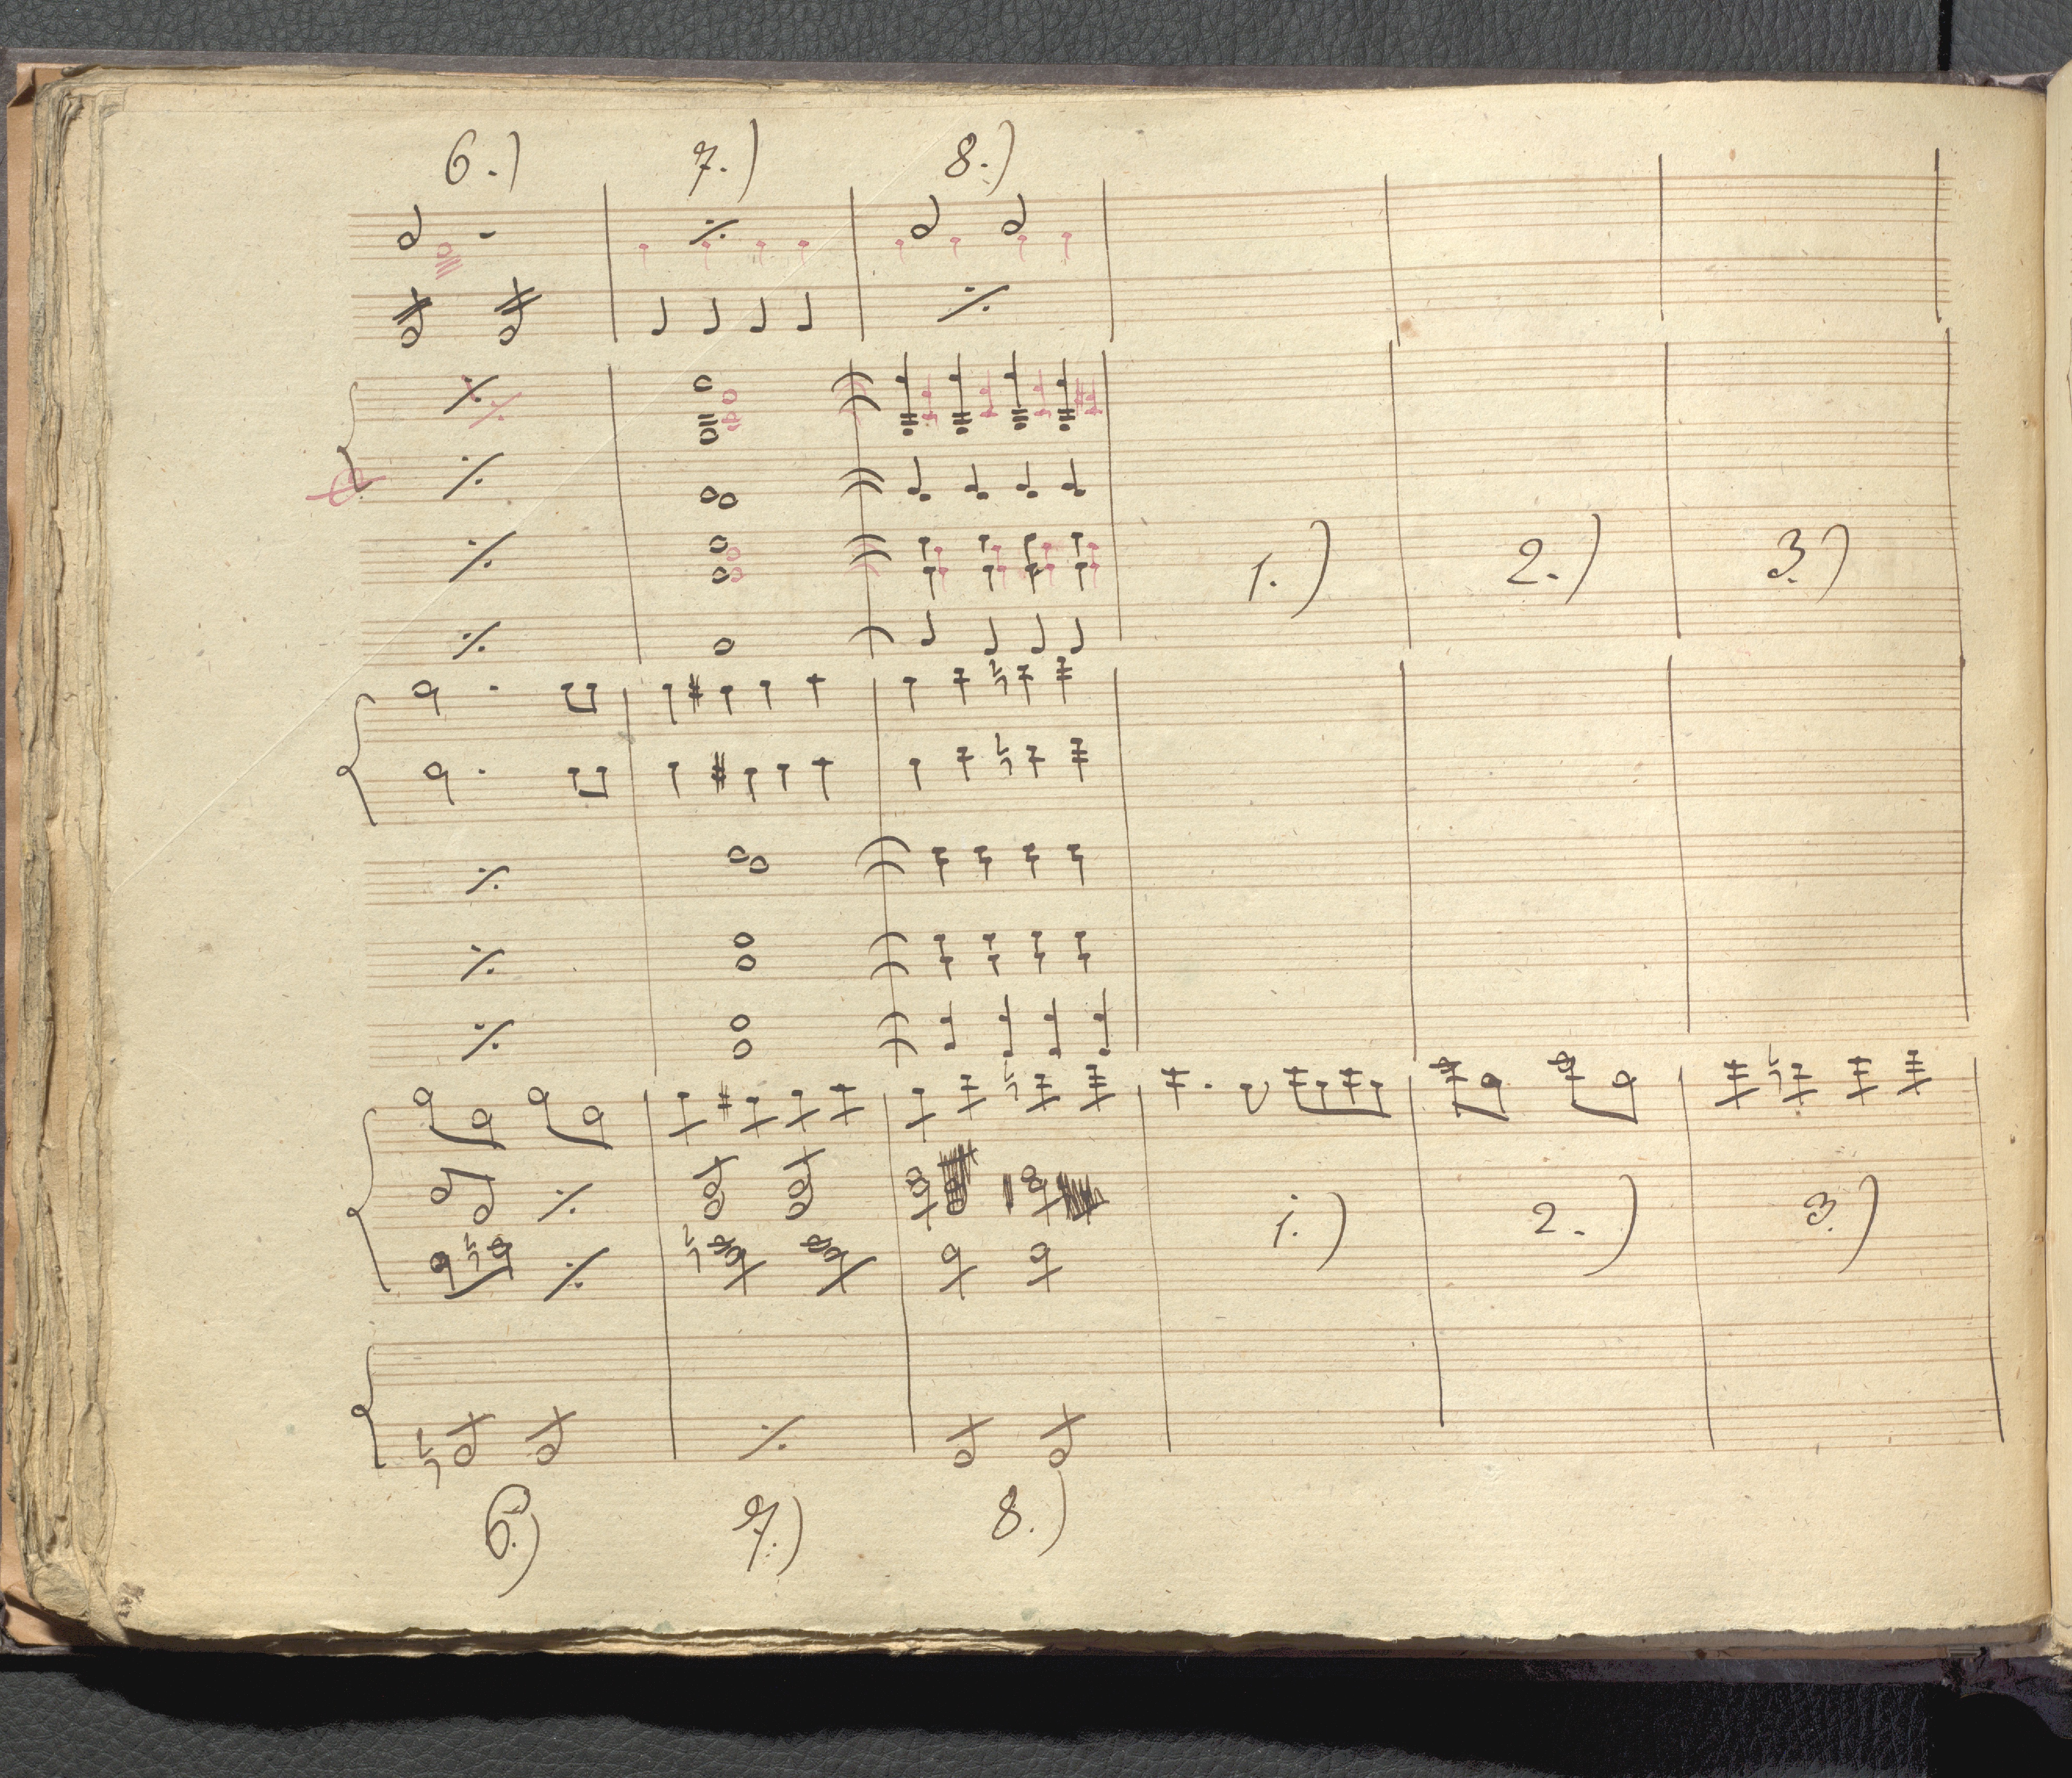 6.) 7.) 8.)
1.) 2.) 3.)
1.) 2.) 3.)
6.) 7.) 8.)